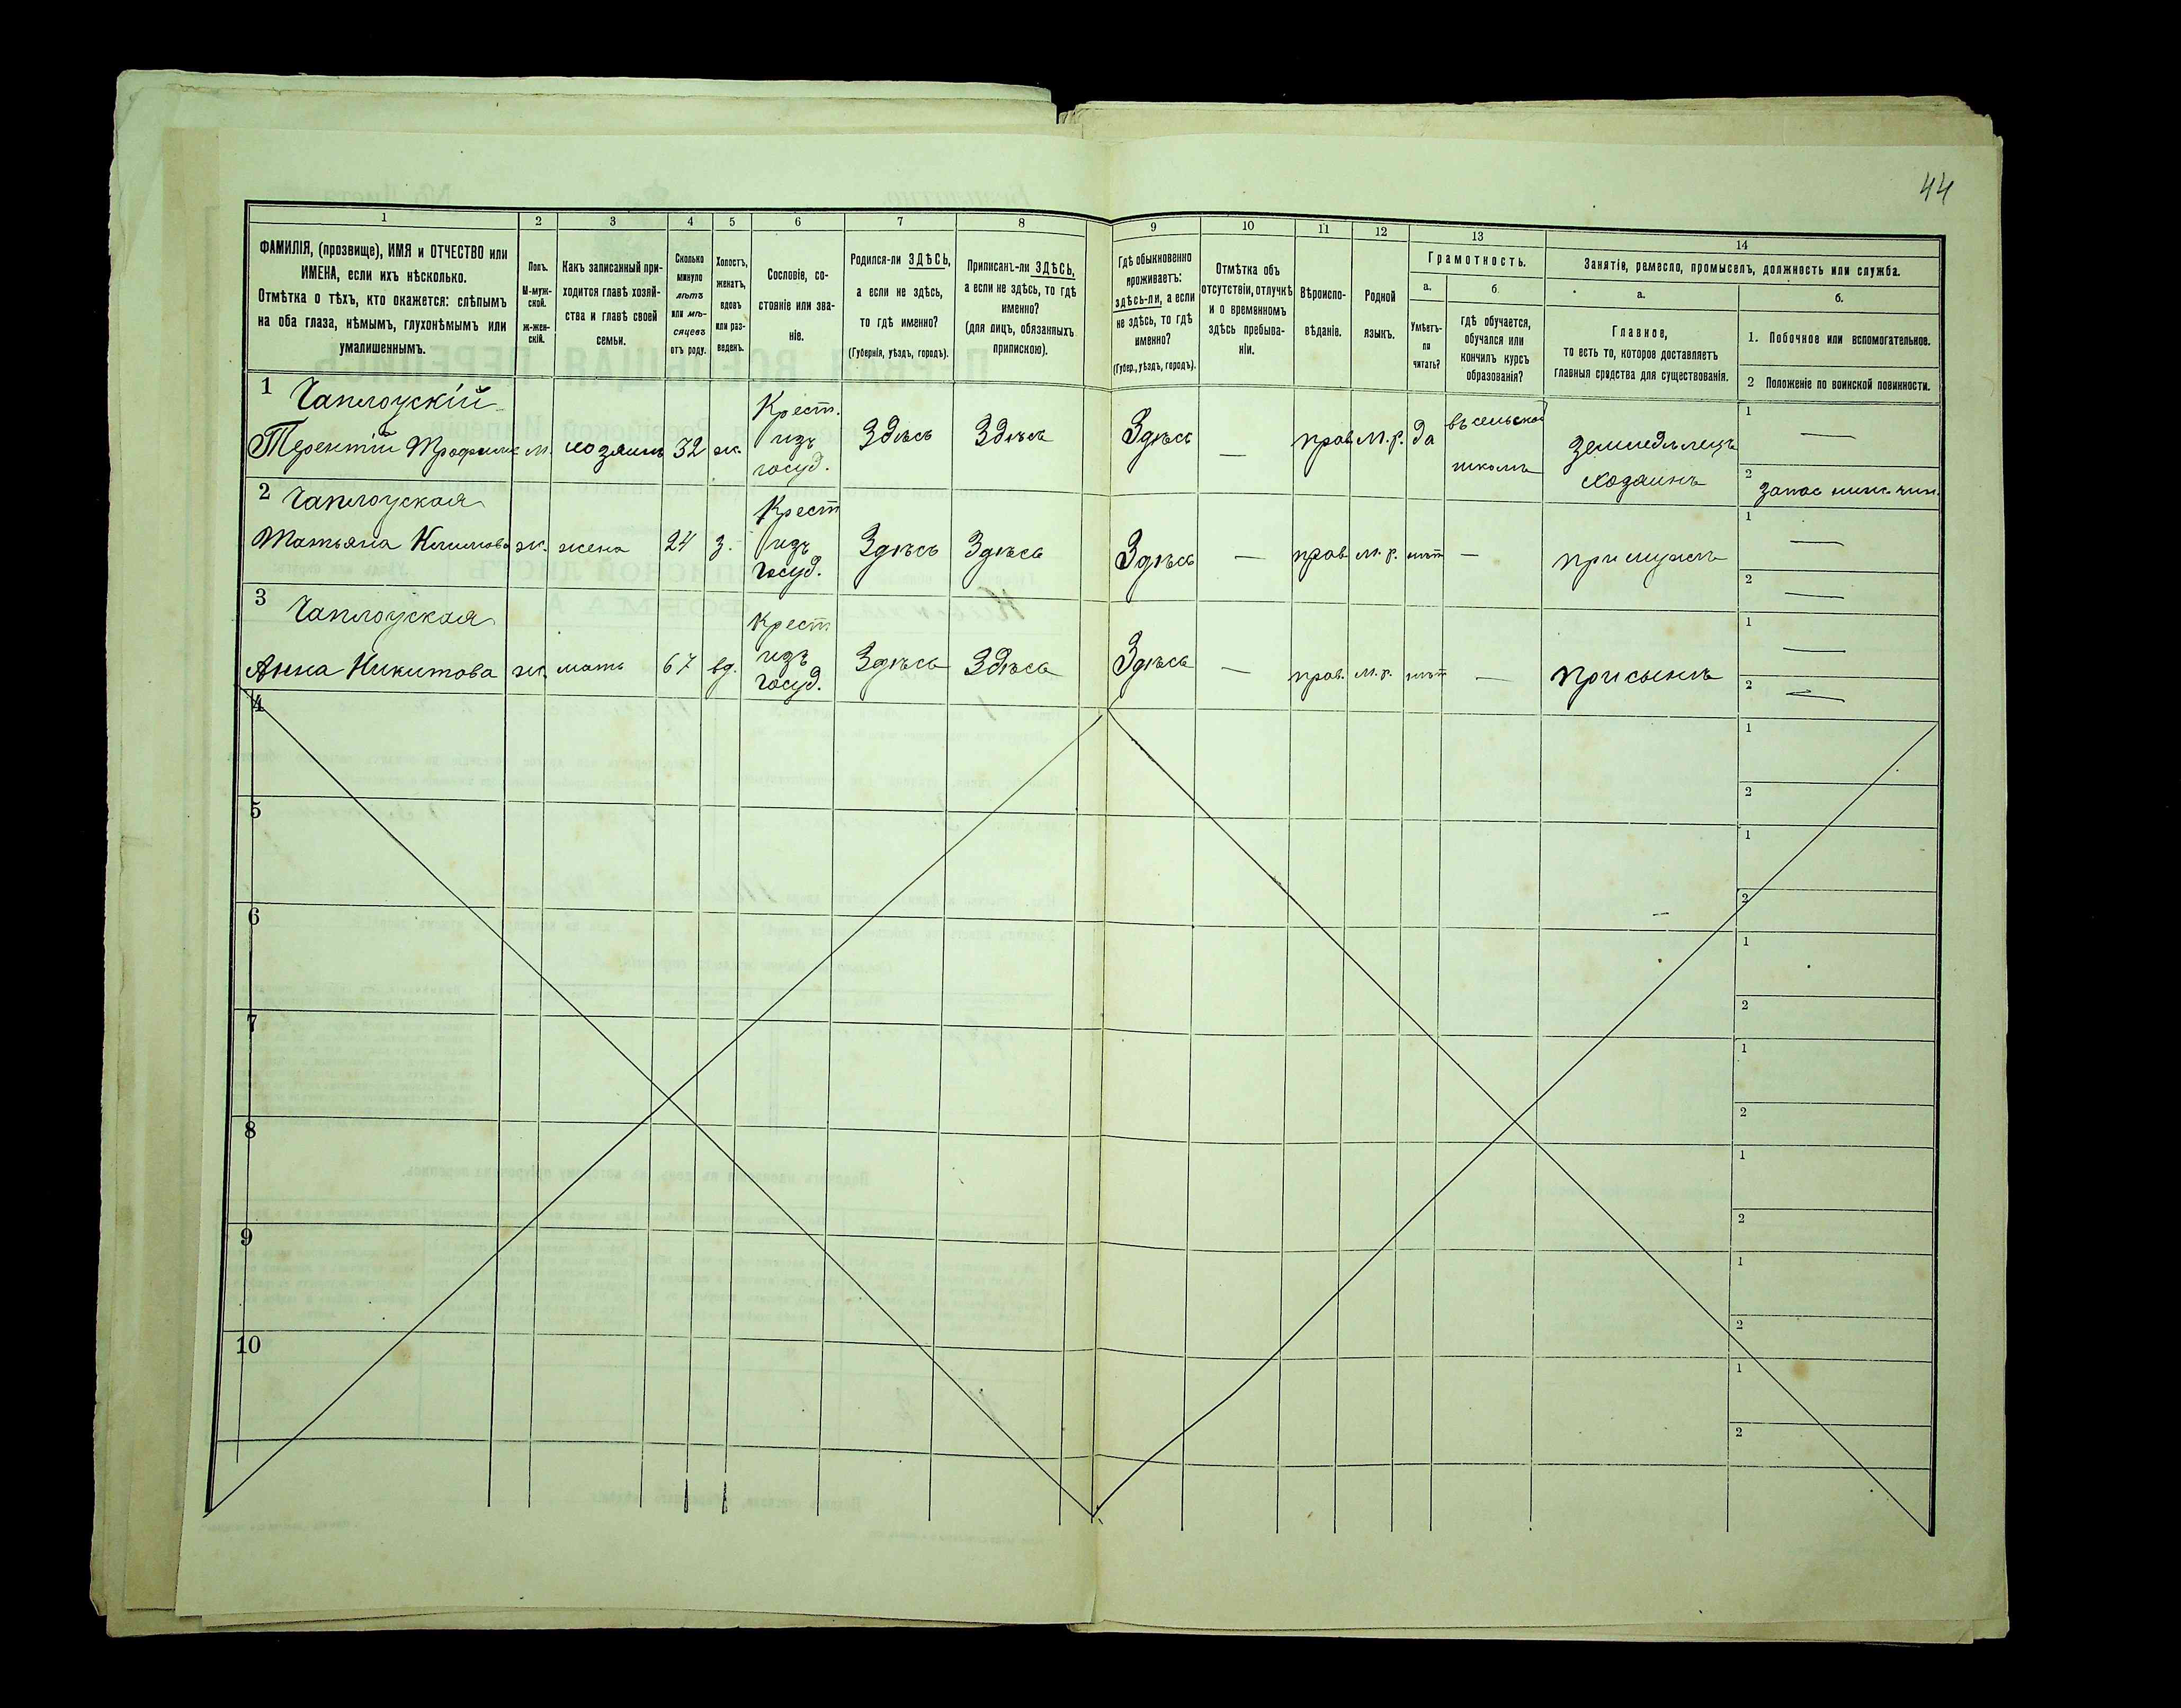 44
1 2 3 4 5 6 7 8 9 10 11 12 13 14
ФАМИЛІЯ, (прозвище), ИМЯ и ОТЧЕСТВО или
ИМЕНА, если ихъ нѣсколько.
Отмѣтка о тѣхъ, кто окажется: слѣпымъ
на оба глаза, нѣмымъ, глухонѣмымъ или
умалишеннымъ.
Полъ.
М-муж-
ской.
ж-жен-
скій.
Какъ записанный при-
ходится главѣ хозяй-
ства и главѣ своей
семьи.
Сколько
минуло
лѣтъ
или мѣ-
сяцевъ
отъ роду.
Холостъ,
женатъ,
вдовъ
или раз-
веденъ.
Сословіе, со-
стояніе или зва-
ніе.
Родился-ли ЗДѢСЬ,
а если не здѣсь,
то гдѣ именно?
(Губернія, уѣздъ, городъ).
Приписанъ-ли ЗДѢСЬ,
а если не здѣсь, то гдѣ
именно?
(для лицъ, обязанныхъ
припискою).
Гдѣ обыкновенно
проживаетъ:
здѣсь-ли, а если
не здѣсь, то гдѣ
именно?
(Губер., уѣздъ, городъ).
Отмѣтка объ
отсутствіи, отлучкѣ
и о временномъ
здѣсь пребыва-
ніи.
Вѣроиспо-
вѣданіе.
Родной
языкъ.
Грамотность.
а.
Умѣетъ-
ли
читать?
б.
гдѣ обучается,
обучался или
кончилъ курсъ
образованія?
Занятіе, ремесло, промыселъ, должность или служба.
а.
Главное,
то есть то, которое доставляетъ
главныя средства для существованія.
б.
1. Побочное или вспомогательное.
2 Положеніе по воинской повинности.
1 Чаплоускій
Терентій Трофим м. хозяинъ 32 ж. Крест. изъ госуд. Здѣсь Здѣсь Здѣсь — прав. м.р. да въ сельской школѣ Земледѣлецъ хозяинъ
1 —
2 Запас нижн. чин.
2 Чаплоуская
Татьяна Климова ж. жена 24 з. Крест изъ госуд. Здѣсь Здѣсь Здѣсь — прав. м. р. нѣт — при мужѣ
1 —
2 —
3 Чаплоуская
Анна Никитова ж. мать 67 вд. Крест изъ госуд. Здѣсь Здѣсь Здѣсь — прав. м. р. нѣт — при сынѣ
1 —
2 —
4
1
2
5
1
2
6
1
2
7
1
2
8
1
2
9
1
2
10
1
2